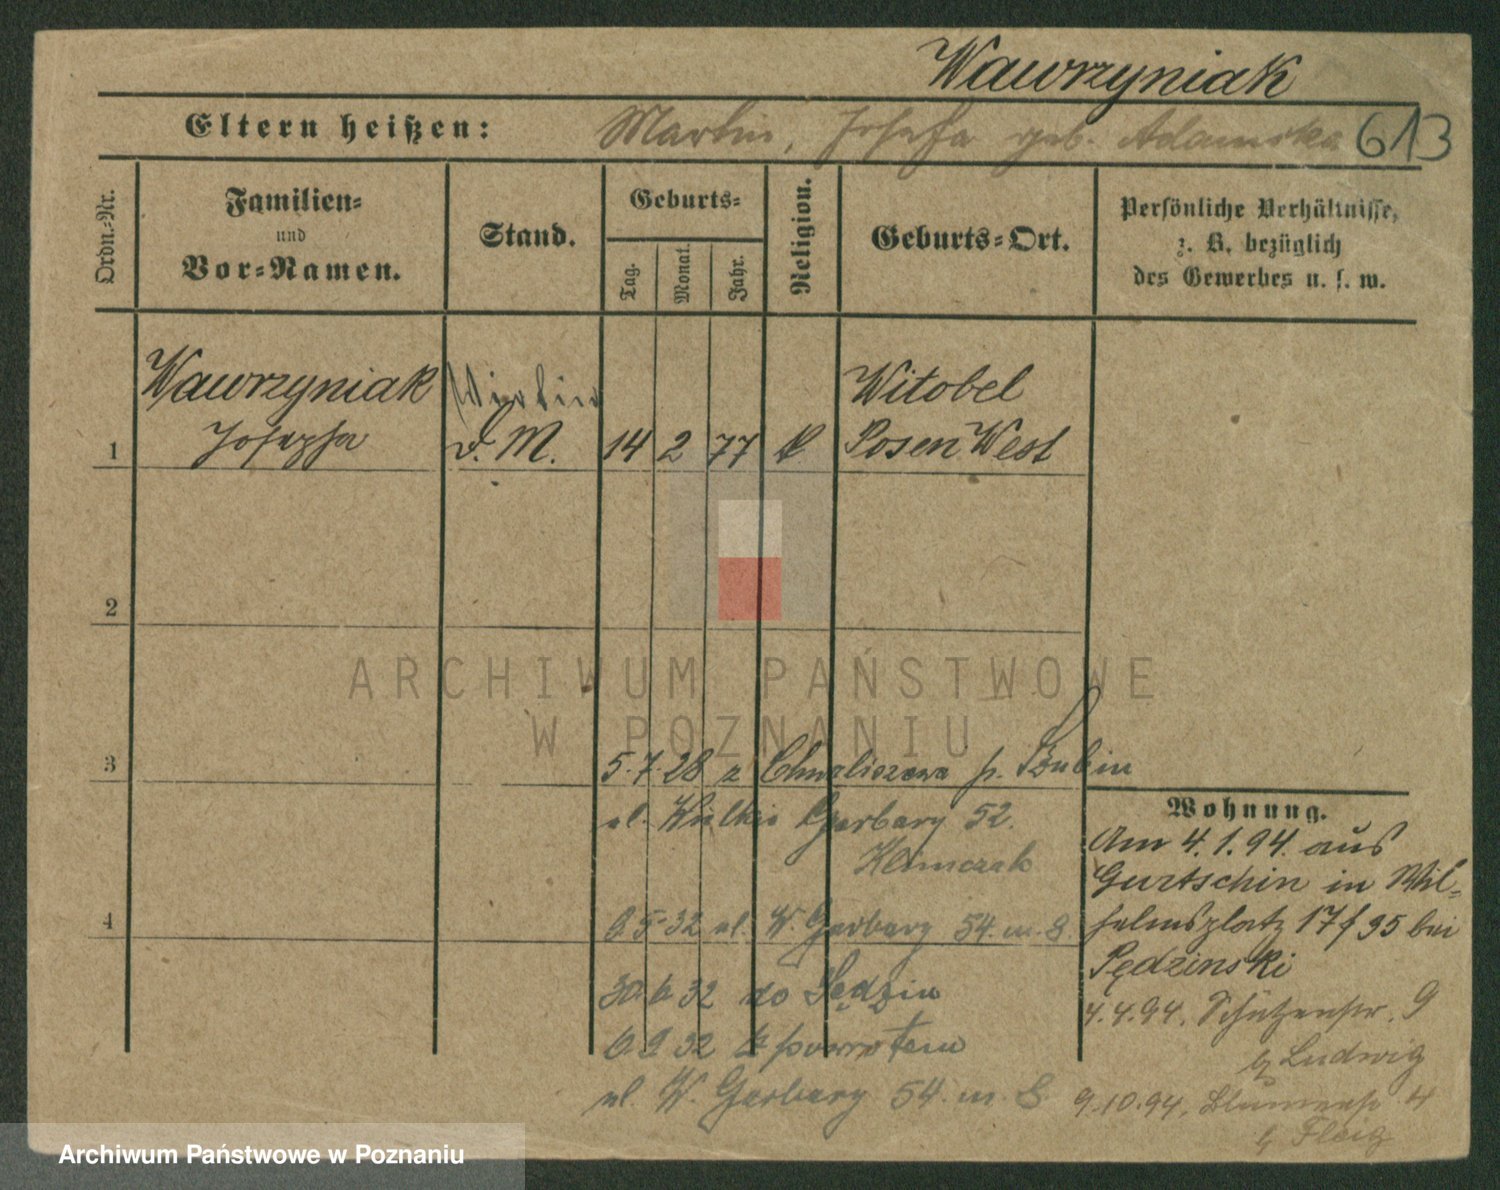 Wawrzyniak
Eltern heißen: Martin, Josefa geb. Adamska 613
Ordn.-Nr.
Familien-
und
Vor-Namen.
Stand.
Geburts-
Tag.
Monat.
Jahr.
Religion.
Geburts-Ort.
Persönliche Verhältnisse,
z. B. bezüglich
des Gewerbes u. s. w.
Wawrzyniak
Witobel
1 Josepha D. M. 14 2 77 k. Posen West
2
ARCHIWUM PAŃSTWOWE
W POZNANIU
3 5.7.28 z Chwaliszewa p.
ul. Wielkie Garbary 52.
Klimczak
4 6.5.32 ul. W. Garbary 54. m. 8
30.6.32 do
6.9.32 z powrotem
ul. W. Garbary 54. m. 8
Wohnung.
Am 4.1.94. aus
Gurtschin in Wil-
helmsplatz 17 f 95 bei
Pędzinski
4.4.94. Schützenstr. 9
b Ludwig
9.10.94. Blumenstr 4
b Fleig
Archiwum Państwowe w Poznaniu